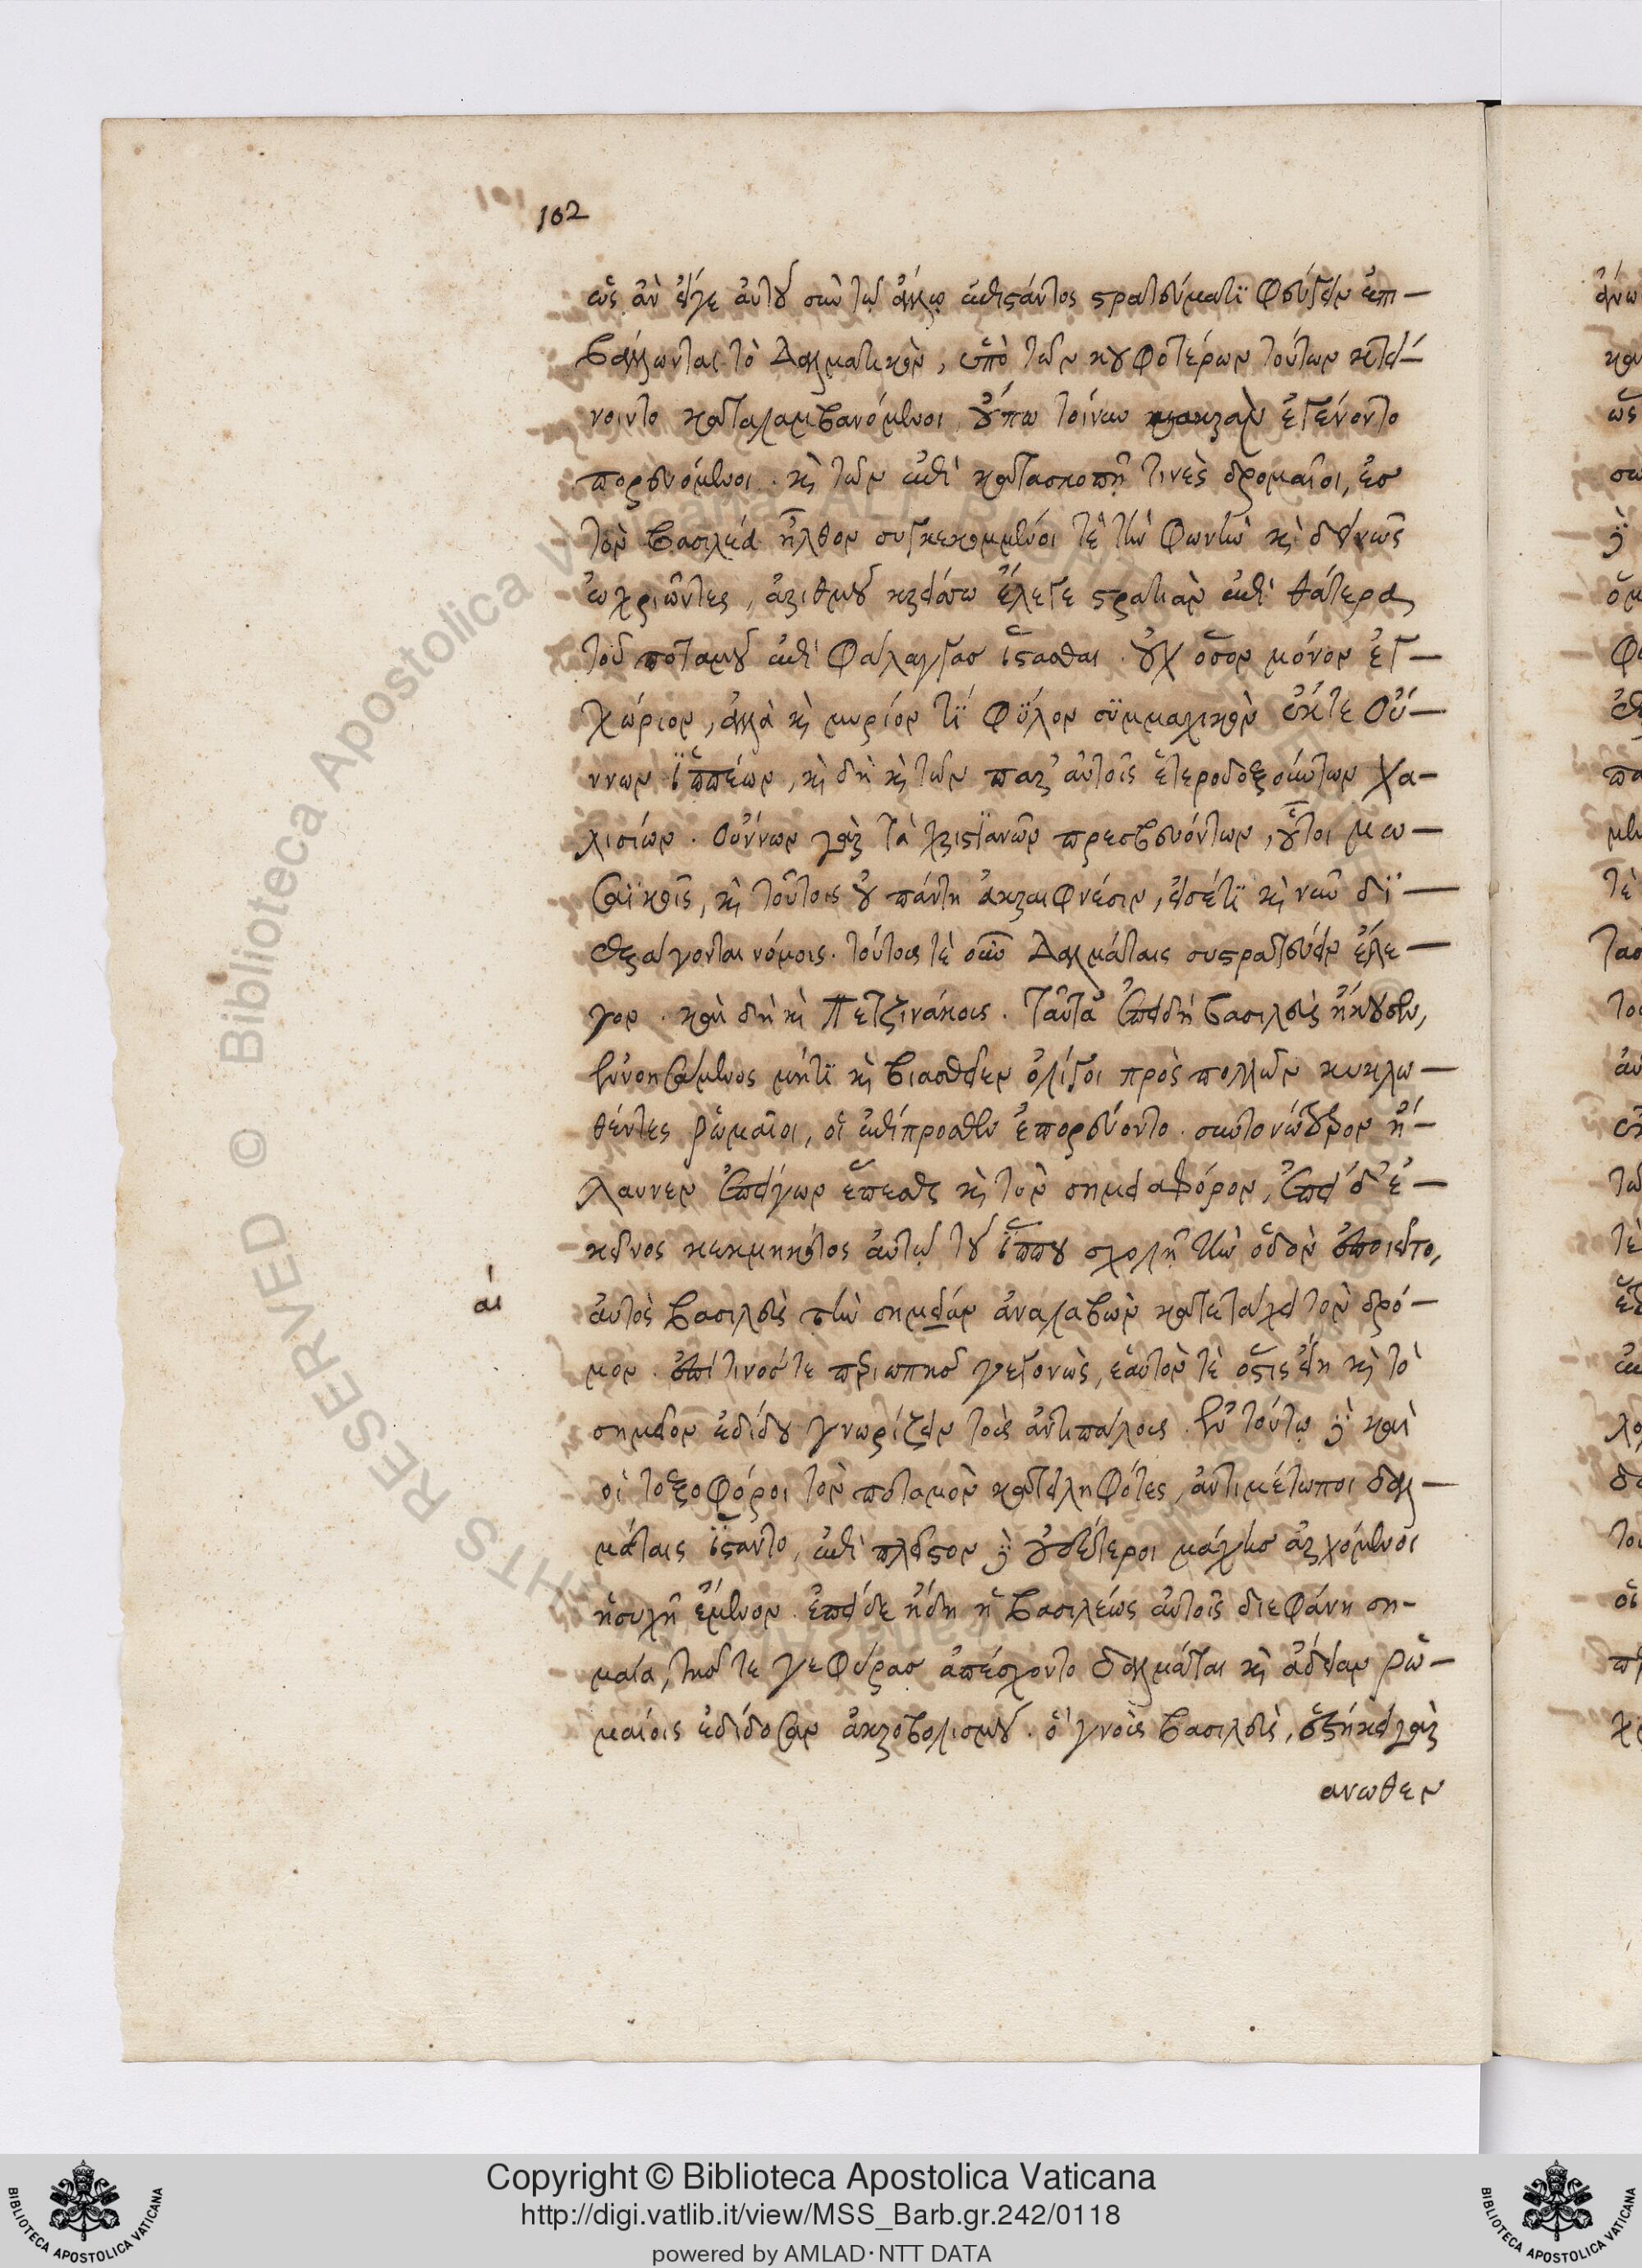 102
ὡς ἂν εἴγε αὐτοῦ σὺν τῷ ἄλλῳ ἐπιστάντος στρατεύματι φεύγειν ἐπι-
βάλλωνται τὸ Δαλματικὸν, ὑπὸ τῶν κουφοτέρων τούτων κτεί-
νοιντο καταλαμβανόμενοι. οὔπω τοίνυν μακρὰν ἐγένοντο
πορευόμενοι. καὶ τῶν ἐπὶ κατασκοπῇ τινὲς δρομαῖοι, ἐσ
τὸν βασιλέα ἦλθον συγκεκομμένοι τὲ τὴν φωνὴν καὶ δεινῶς
ὠχριῶντες, ἀριθμοῦ κρείσσω ἔλεγε στρατιὰν ἐπὶ θάτερα
τοῦ ποταμοῦ ἐπὶ φάλαγγασ ἵστασθαι. οὐχ ὅσον μόνον ἐγ-
χώριον, ἀλλὰ καὶ μυρίόν τϊ φῦλον σϋμμαχικὸν ἔκ τε Οὔ-
ννων ἱππέων, καὶ δὴ καὶ τῶν παρ' αὐτοῖς ἑτεροδοξούντων Χα-
λισίων. Οὔννων γὰρ τὰ χριστϊανῶν πρεσβευόντων, οὗτοι μω-
σαϊκοῖς, καὶ τούτοις οὐ πάντη ἀκραιφνέσιν, εἰσέτϊ καὶ νῦν δϊ-
εξάγονται νόμοις. τούτους τὲ οὖν Δαλμάταις συστρατεύειν ἔλε-
γον. καὶ δὴ καὶ Πετζινάκους. Ταῦτα ἐπειδὴ βασιλεὺς ἤκουσεν,
ἐννοησάμενος μήτϊ καὶ βιασθεῖεν ὀλίγοι πρὸς πολλῶν κυκλω-
θέντες ῥωμαῖοι, οἳ ἐπίπροσθεν ἐπορεύοντο. σύντονώτερον ἤ-
λαυνεν ἐπείγων ἕπεσθαι καὶ τὸν σημειαφόρον, ἐπεὶ δ' ἐ-
κεῖνος κεκμηκότος αὐτῷ τοῦ ἵππου σχολῇ τὴν ὁδὸν ἐποιεῖτο,
αἱ
αὐτὸς βασιλεὺς τὴν σημείαν ἀναλαβὼν κατεταχεῖ τὸν δρό-
μον. ἐπί τινός τε περιωπῆσ γεγονὼς, ἑαυτὸν τὲ ὅστις εἴη καὶ τὸ
σημεῖον ἐδίδου γνωρίζειν τοῖς ἀντιπάλοις. ἐν τούτῳ δὲ καὶ
οἱ τοξοφόροι τὸν ποταμὸν κατειληφότες, ἀντιμέτωποι δαλ-
μάταις ἵσταντο, ἐπὶ πλεῖστον δὲ οὐδέτεροι μάχησ ἀρχόμενοι
ἡσυχῆ ἔμενον. ἐπεὶ δε ἤδη ἡ βασιλέως αὐτοῖς διεφάνη ση-
μαία, τῆσ τε γεφύρασ ἀπέσχοντο δαλμάται καὶ ἄδειαν ῥω-
μαίοις ἐδίδοσαν ἀκροβολισμοῦ. ὃ γνοὺς βασιλεὺς, ἐξήκει γὰρ
ανωθεν
Copyright © Biblioteca Apostolica Vaticana
http://digi.vatlib.it/view/MSS_Barb.gr.242/0118
powered by AMLAD·NTT DATA